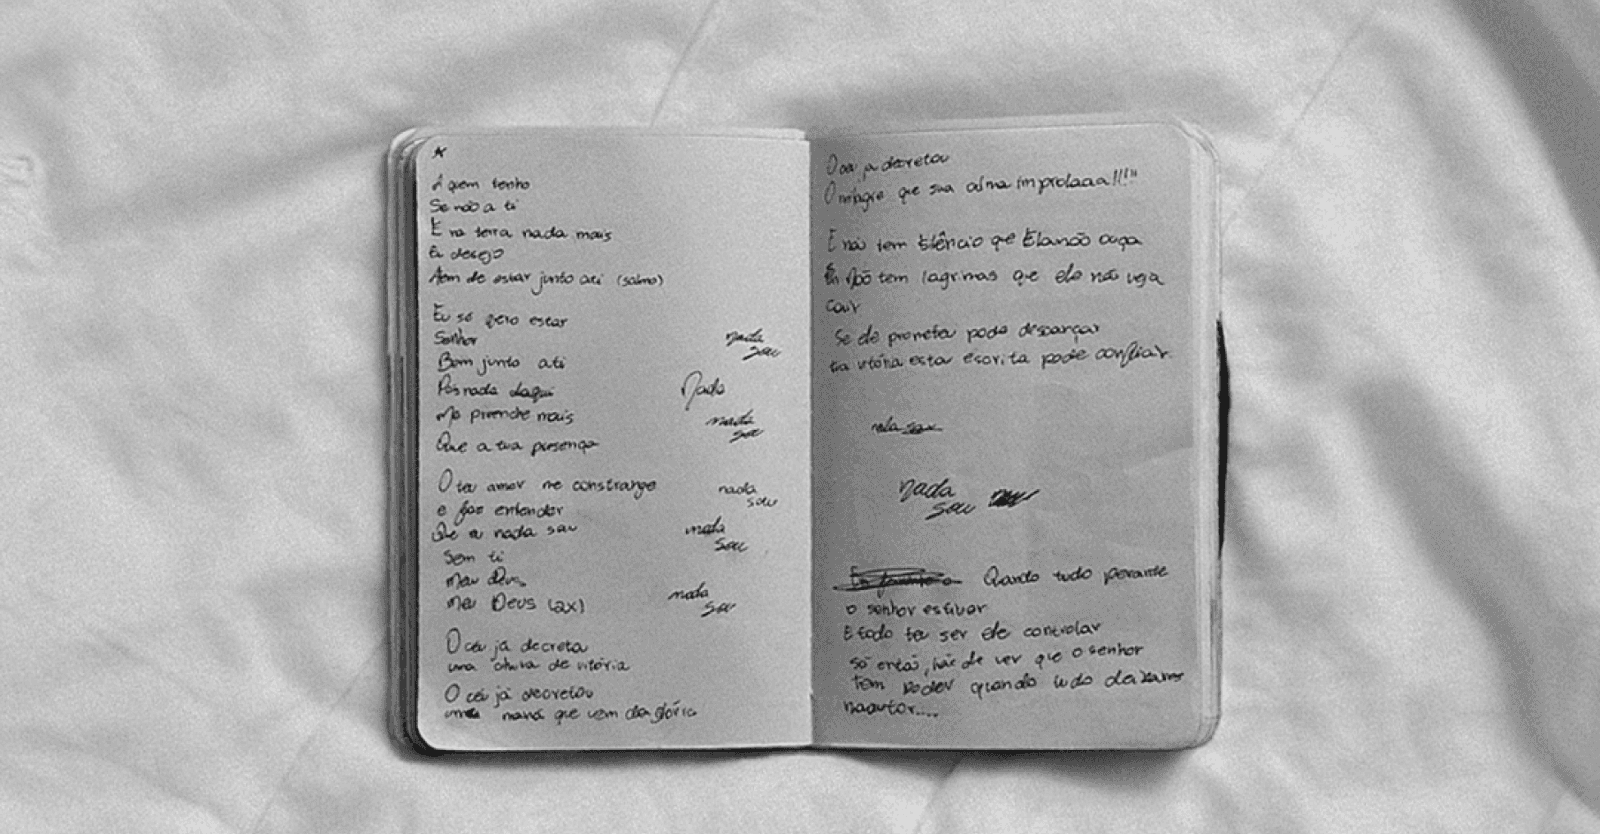 A quem tenho
Se não a ti
E na terra nada mais
Eu desejo
Além de estar junto a ti (salmo)
Eu só quero estar
Senhor
Bem junto a ti
Pois nada daqui
Me preenche mais
Que a tua presença
nada
sou
Nada
nada
sou
O teu amor me constrange
e faz entender
Que eu nada sou
Sem ti
meu Deus
meu Deus (2x)
nada
sou
nada
sou
nada
sou
O céu já decreta
uma chuva de vitória
O céu já decretou
maná que vem da glória
O céu já decretou
O milagre que sua alma implora!!!"
E não tem silêncio que Ele não ouça
não tem lagrimas que ele não veja
cair
Se ele prometeu pode descançar
tua vitória esta escrita pode confiar
nada sou
nada
sou
Quando tudo perante
o senhor estiver
E todo teu ser ele controlar
só então, hás de ver que o senhor
tem poder quando tudo deixares
no altar....